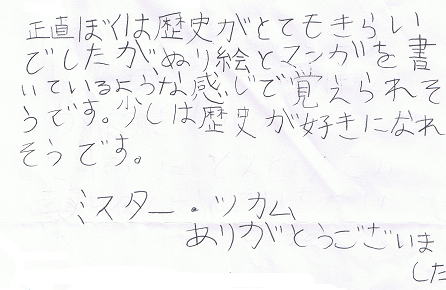 正直ぼくは歴史がとてもきらい
でしたがぬり絵とマンガを書
いているような感じで覚えられそ
うです。少しは歴史が好きになれ
そうです。
ミスター・ツカム
ありがとうございま
した